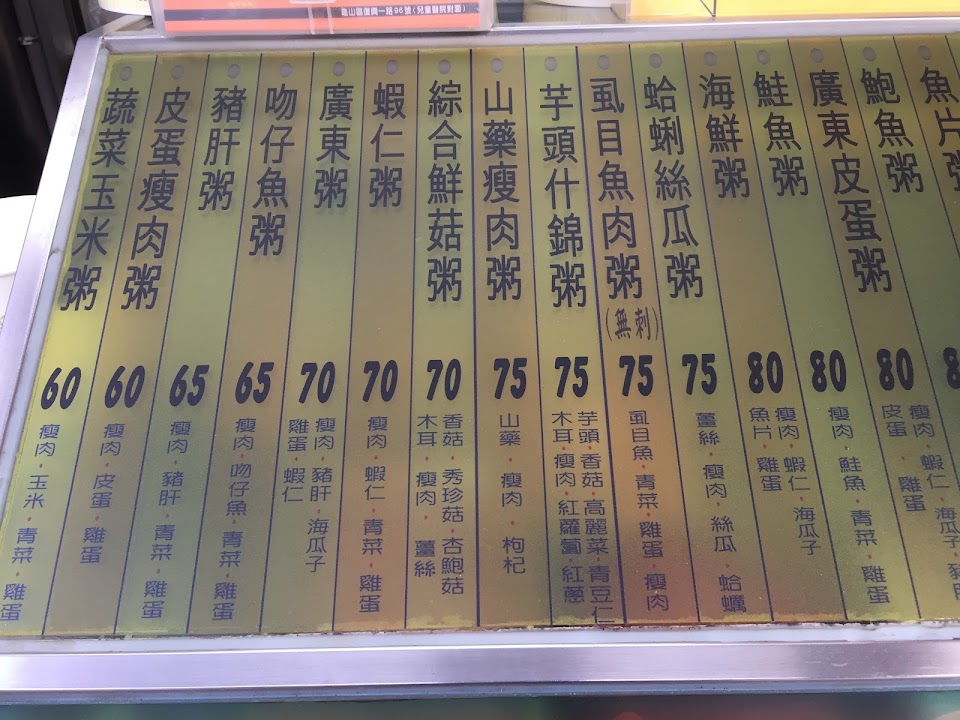 龜山區復興一路96號(兒童醫院對面)
蔬菜玉米粥
60
瘦肉・玉米・青菜・雞蛋
皮蛋瘦肉粥
60
瘦肉・皮蛋・雞蛋
豬肝粥
65
瘦肉・豬肝・青菜・雞蛋
吻仔魚粥
65
瘦肉・吻仔魚・青菜・雞蛋
廣東粥
70
瘦肉・豬肝・海瓜子
雞蛋・蝦仁
蝦仁粥
70
瘦肉・蝦仁・青菜・雞蛋
綜合鮮菇粥
70
香菇・秀珍菇・杏鮑菇
木耳・瘦肉・薑絲
山藥瘦肉粥
75
山藥・瘦肉・枸杞
芋頭什錦粥
75
芋頭・香菇・高麗菜・青豆仁
木耳・瘦肉・紅蘿蔔・紅蔥
虱目魚肉粥(無刺)
75
虱目魚・青菜・雞蛋・瘦肉
蛤蜊絲瓜粥
75
薑絲・瘦肉・絲瓜・蛤蠣
海鮮粥
80
瘦肉・蝦仁・海瓜子
魚片・雞蛋
鮭魚粥
80
瘦肉・鮭魚・青菜・雞蛋
廣東皮蛋粥
80
瘦肉・蝦仁・海瓜子・豬肝
皮蛋・雞蛋
鮑魚粥
魚片粥